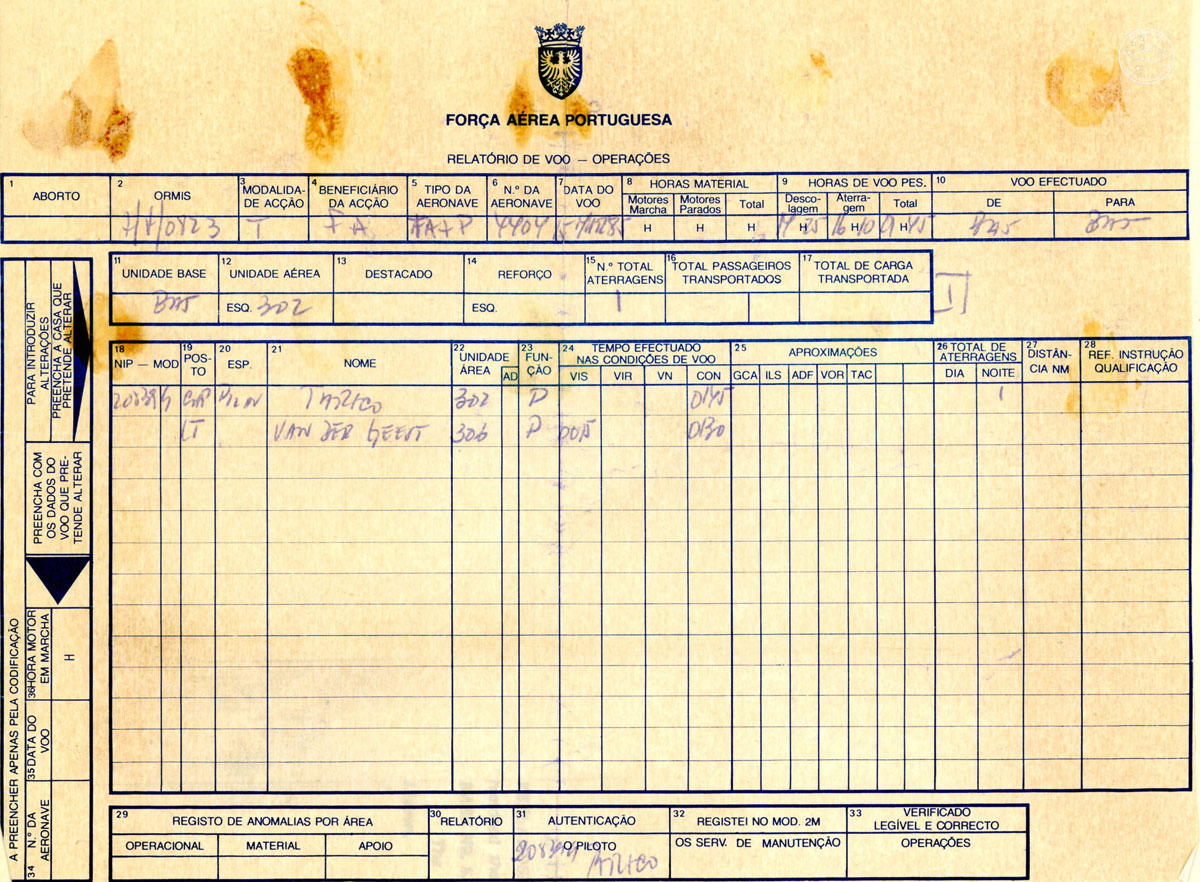 FORÇA AÉREA PORTUGUESA
RELATÓRIO DE VOO — OPERAÇÕES
1 ABORTO
2 ORMIS
3 MODALIDA-
DE ACÇÃO
4 BENEFICIÁRIO
DA ACÇÃO
5 TIPO DA
AERONAVE
6 N.º DA
AERONAVE
7 DATA DO
VOO
8 HORAS MATERIAL
Motores
Marcha
Motores
Parados
Total
9 HORAS DE VOO PES.
Desco-
lagem
Aterra-
gem
Total
10 VOO EFECTUADO
DE
PARA
T FA 4404
H H H H H H
BA5 BA5
11 UNIDADE BASE
12 UNIDADE AÉREA
13 DESTACADO
14 REFORÇO
15 N.º TOTAL
ATERRAGENS
16 TOTAL PASSAGEIROS
TRANSPORTADOS
17 TOTAL DE CARGA
TRANSPORTADA
BA5 ESQ. 302 ESQ. 1
I
PARA INTRODUZIR
ALTERAÇÕES
PREENCHA A CASA QUE
PRETENDE ALTERAR
PREENCHA COM
OS DADOS DO
VOO QUE PRE-
TENDE ALTERAR
18 NIP — MOD
19 POS-
TO
20 ESP.
21 NOME
22 UNIDADE
ÁREA
AD
23 FUN-
ÇÃO
24 TEMPO EFECTUADO
NAS CONDIÇÕES DE VOO
VIS VIR VN CON
25 APROXIMAÇÕES
GCA ILS ADF VOR TAC
26 TOTAL DE
ATERRAGENS
DIA NOITE
27 DISTÂN-
CIA NM
28 REF. INSTRUÇÃO
QUALIFICAÇÃO
CAP PILAV 302 P 0145 1
LT VAN DER GEEST 306 P 0015 0130
A PREENCHER APENAS PELA CODIFICAÇÃO
36 HORA MOTOR
EM MARCHA
H
35 DATA DO
VOO
34 N.º DA
AERONAVE
29 REGISTO DE ANOMALIAS POR ÁREA
OPERACIONAL MATERIAL APOIO
30 RELATÓRIO
31 AUTENTICAÇÃO
O PILOTO
32 REGISTEI NO MOD. 2M
OS SERV. DE MANUTENÇÃO
33 VERIFICADO
LEGÍVEL E CORRECTO
OPERAÇÕES